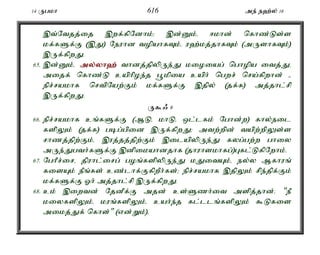 14 ருபமா 616 அந் நஹ்ல் 16
இவ்வேதத்தை இறக்கினோம்; இன்னும், ஈமான் கொண்டுள்ள
மக்களுக்கு (இது) நேரான வழியாகவும், ரஹ்மத்தாகவும் (அருளாகவும்)
இருக்கிறது.
65. இன்னும், அல்லாஹ் வானத்திலிருந்து மழையைப் பொழிய வைத்து,
அதைக் கொண்டு உயிரிழந்த பூமியை உயிர் பெறச் செய்கிறான் -
நிச்சயமாக செவியேற்கும் மக்களுக்கு இதில் (தக்க) அத்தாட்சி
இருக்கிறது.
66. நிச்சயமாக உங்களுக்கு (ஆடு, மாடு, ஒட்டகம் போன்ற) கால்நடை
களிலும் (தக்க) படிப்பினை இருக்கிறது; அவற்றின் வயிற்றிலுள்ள
சாணத்திற்கும், இரத்தத்திற்கும் இடையிலிருந்து கலப்பற்ற பாலை
அருந்துபவர்களுக்கு இனிமையானதாக (தாராளமாகப்)புகட்டுகிறோம்.
67. பேரீச்சை, திராட்சைப் பழங்களிலிருந்து மதுவையும், நல்ல ஆகாரங்
களையும் நீங்கள் உண்டாக்குகிறீர்கள்; நிச்சயமாக இதிலும் சிந்திக்கும்
மக்களுக்கு ஓர் அத்தாட்சி இருக்கிறது.
68. உம் இறைவன் தேனீக்கு அதன் உள்ளுணர்வை அளித்தான். "நீ
மலைகளிலும், மரங்களிலும், உயர்ந்த கட்டடங்களிலும் கூடுகளை
அமைத்துக் கொள்" (என்றும்),